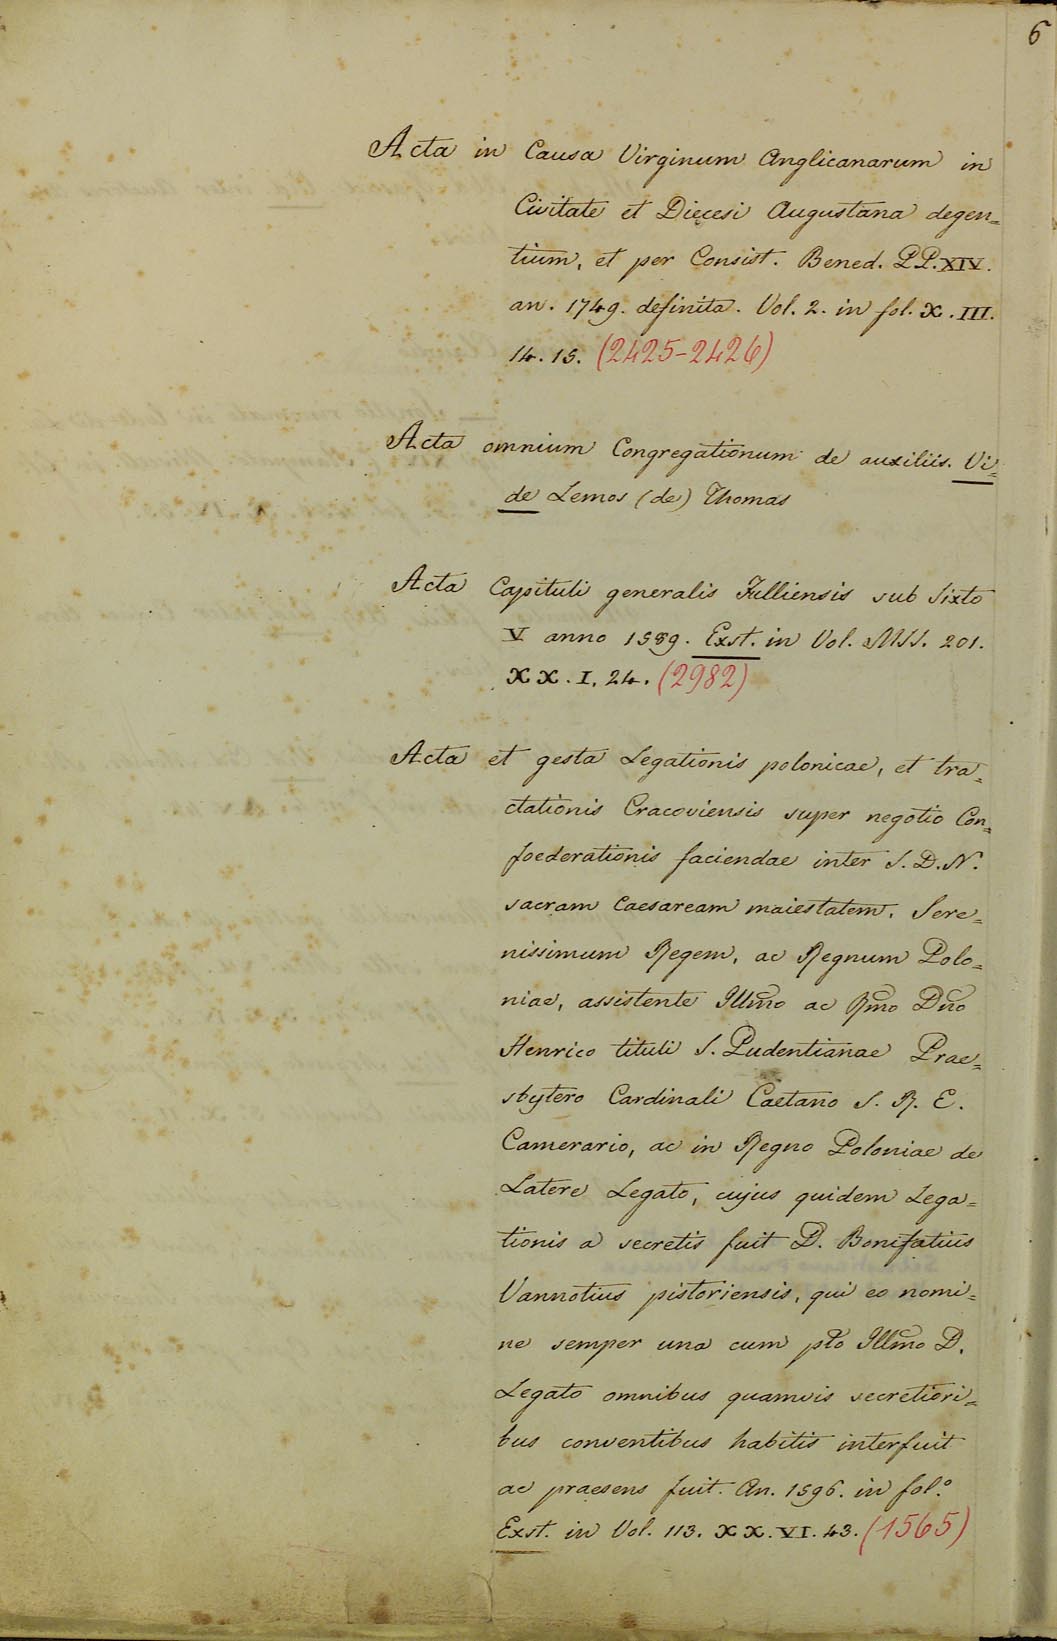 6
Acta in Causa Virginum Anglicanarum in
Civitate et Dięcesi Augustana degen=
tium, et per Consist. Bened. PP. XIV.
an. 1749. definita. Vol. 2. in fol. X. III.
14. 15. (2425-2426)
Acta omnium Congregationum de auxiliis. Vi=
de Lemos (de) Thomas
Acta Capituli generalis Fulliensis sub Sixto
V anno 1589. Exst. in Vol. MSS. 201.
XX. I. 24. (2982)
Acta et gesta Legationis polonicae, et tra=
ctationis Cracoviensis super negotio Con=
foederationis faciendae inter S. D. N.
sacram Caesaream maiestatem, Sere=
nissimum Regem, ac Regnum Polo=
niae, assistente Illmo ac Rmo Dno
Henrico tituli S. Pudentianae Prae=
sbytero Cardinali Caetano S. R. E.
Camerario, ac in Regno Poloniae de
Latere Legato, cujus quidem Lega=
tionis a secretis fuit D. Bonifatius
Vannotius pistoriensis, qui eo nomi=
ne semper una cum pto Illmo D.
Legato omnibus quamvis secretiori=
bus conventibus habitis interfuit
ac praesens fuit. An. 1596. in fol.º
Exst. in Vol. 113. XX. VI. 43. (1565)